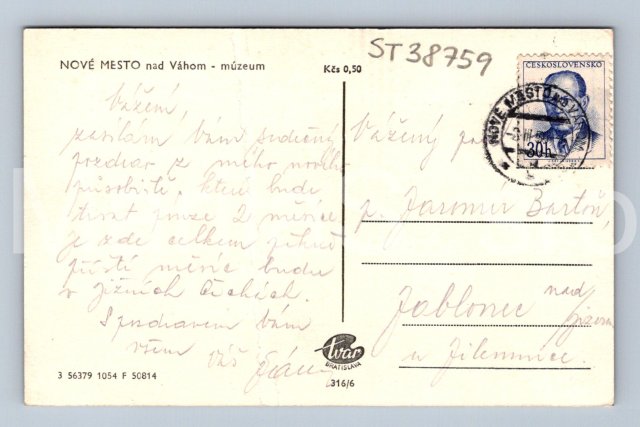 NOVÉ MESTO nad Váhom - múzeum
Kčs 0,50
ST38759
ČESKOSLOVENSKO
30h
NOVÉ MESTO NAD VÁHOM
Vážení,
zasílám Vám srdečný
pozdrav z mého nového
působiště, které bude
trvat pouze 2 měsíce
je zde celkem pěkně
příští měsíc budu
v jižních Čechách.
S pozdravem Vám
všem
Váš
Vážený pan
p. Jaromír Bartoň,
Jablonec nad
Jizerou
u Jilemnice.
tvar
BRATISLAVA
316/6
3 56379 1054 F 50814